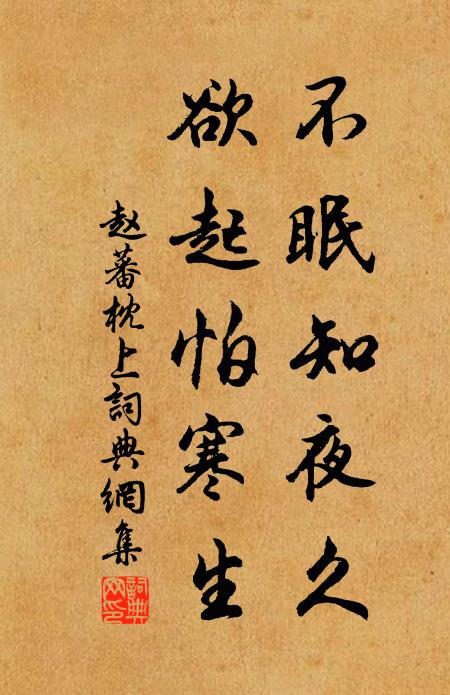 不眠知夜久
欲起怕寒生
赵蕃枕上詞典網集
詞典网印